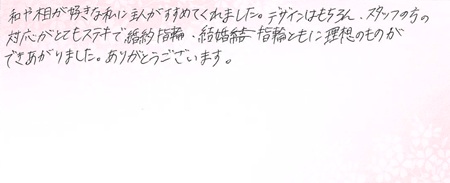 和や相が好きな私に主人がすすめてくれました。デザインはもちろん、スタッフの方の
対応がとてもステキで婚約指輪、結婚結指輪ともに理想のものが
できあがりました。ありがとうございます。